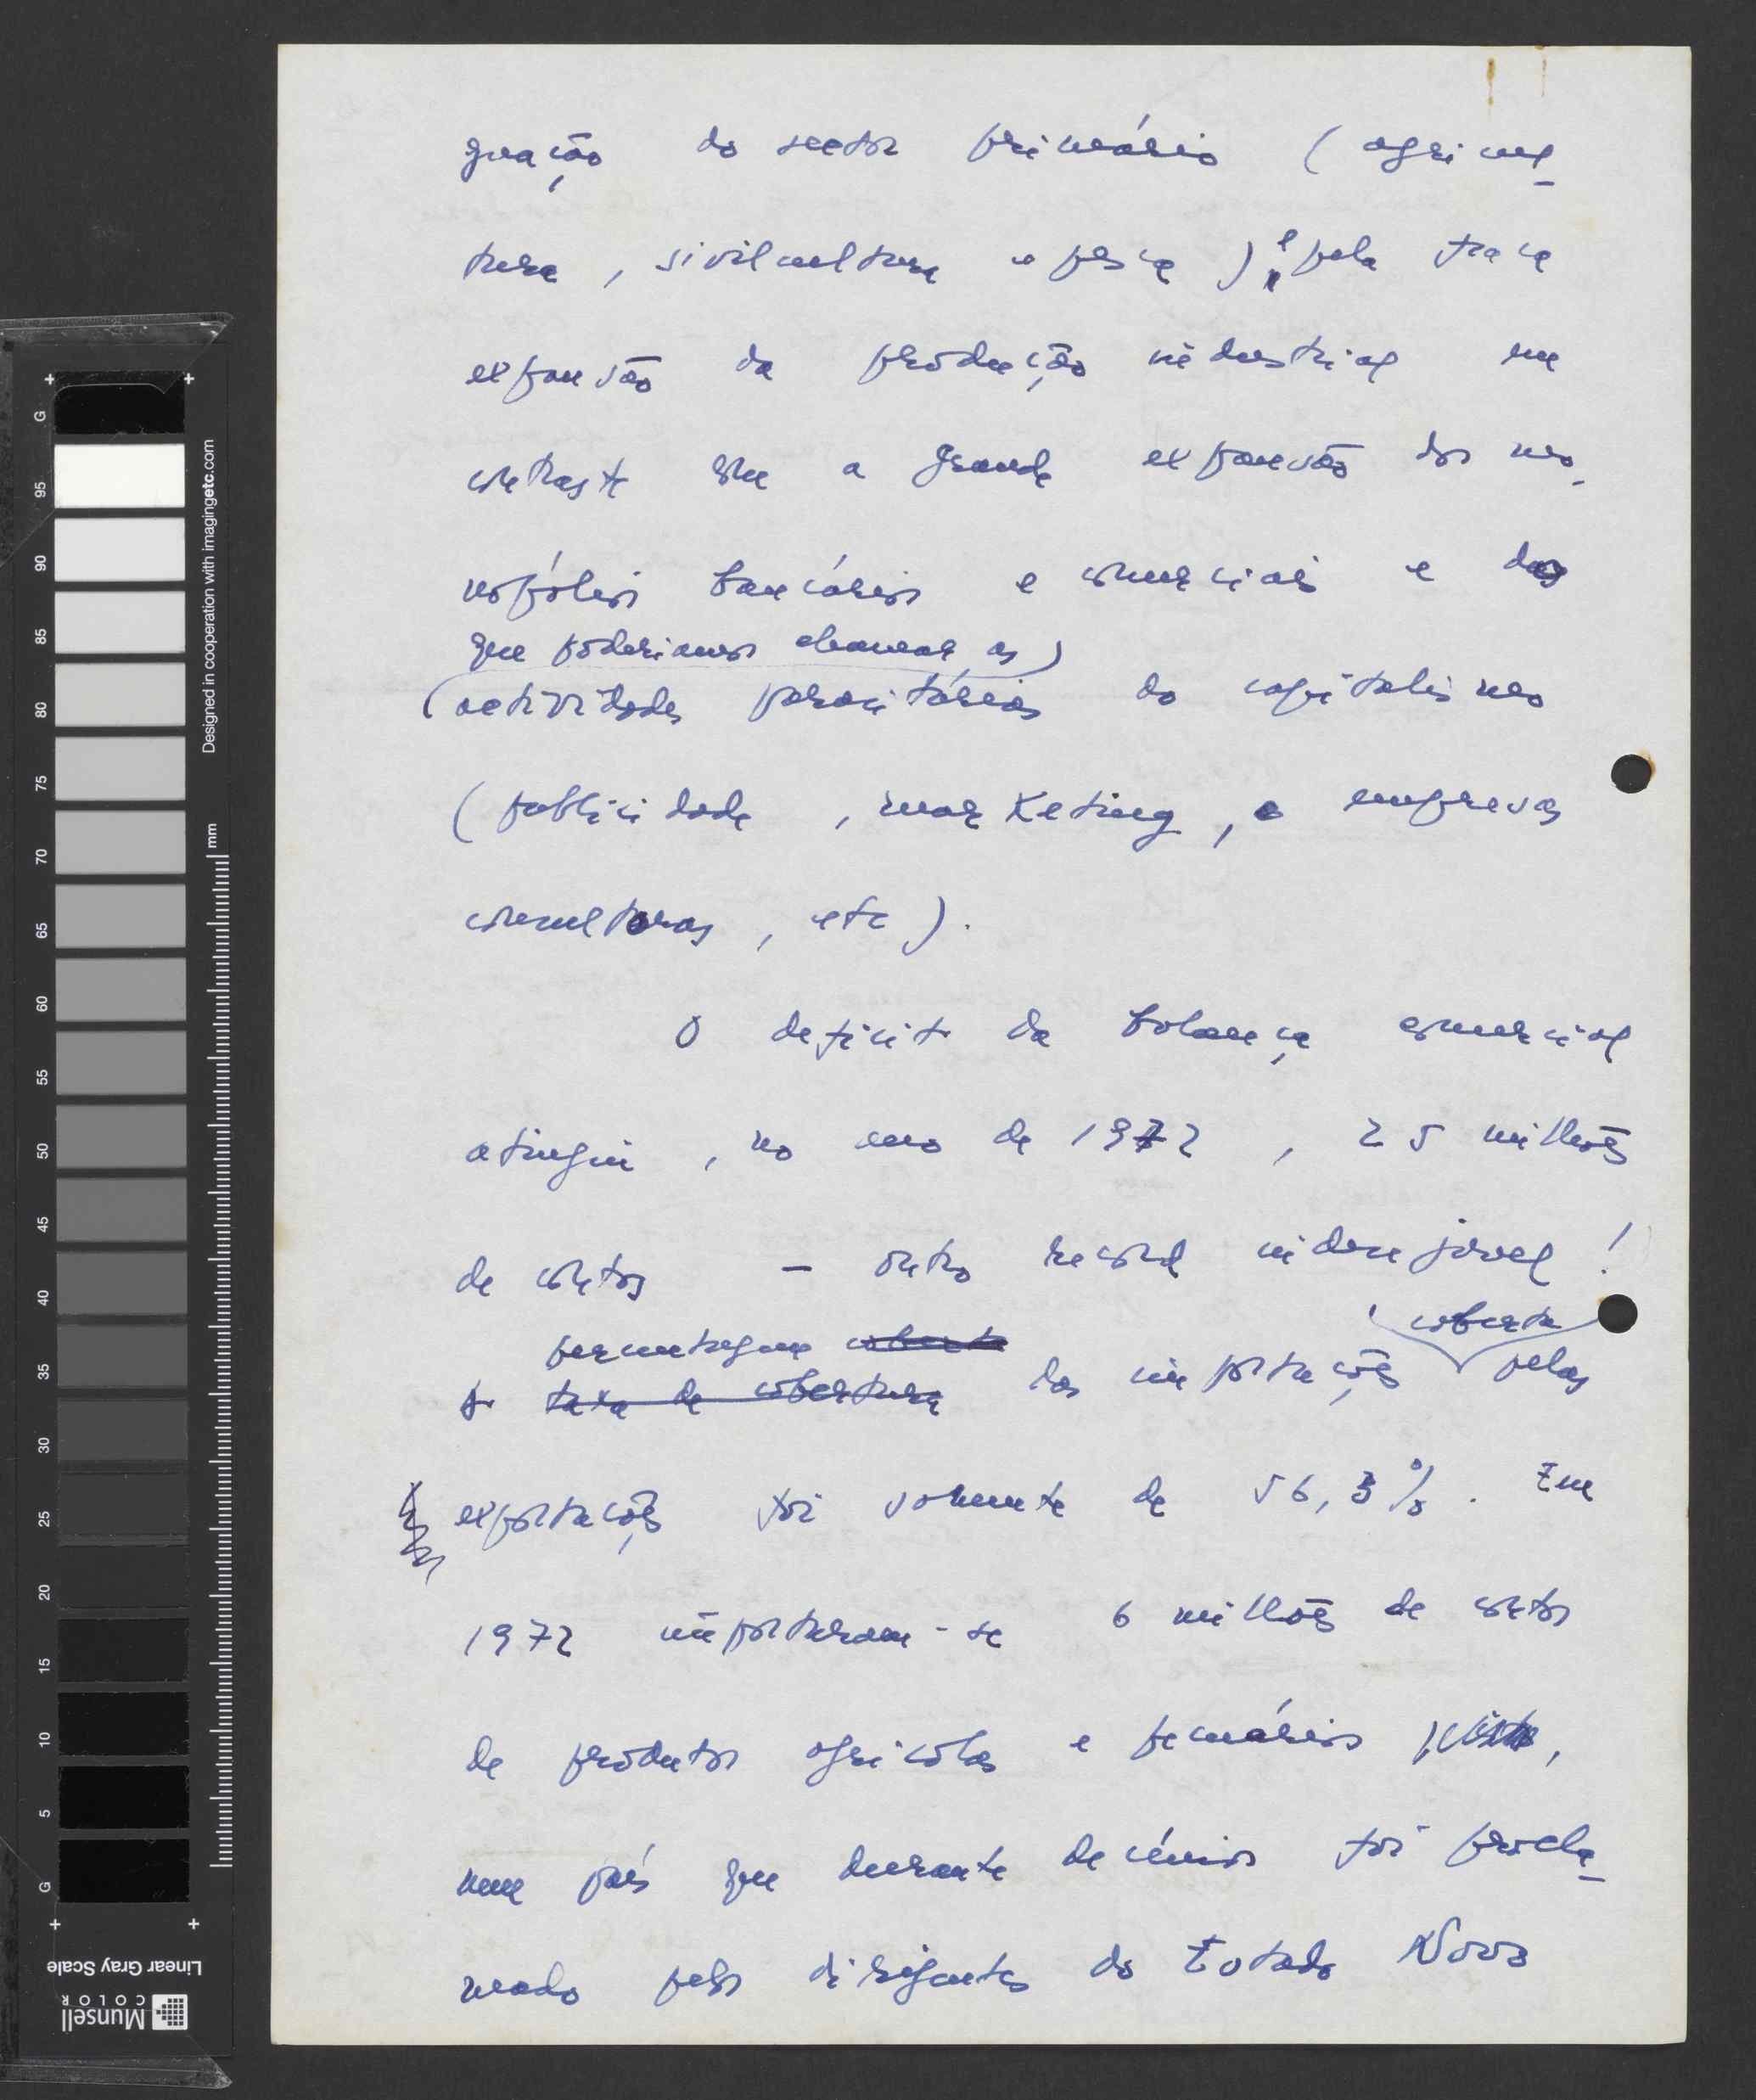 gnação do sector primário (agricul-
tura, sivilcultura e pesca) e pela fraca
expansão da produção industrial em
contraste com a grande expansão dos mo-
nopólios bancários e comerciais e das
que poderiamos chamar as)
(actividades parasitárias do capitalismo
(publicidade, marKeting, empresas
consultoras, etc).
O deficit da balança comercial
atingiu, no ano de 1972, 25 milhões
de contos - outro record indesejável!
percentagem coberta coberta
A taxa de cobertura das importações pelas
exportações foi somente de 56,3%. Em
1972 importaram-se 6 milhões de contos
de produtos agrícolas e pecuários,
num país que durante decénios foi procla-
mado pelos dirigentes do Estado Novo
G 95 90 85 80 75 70 65 60 55 50 45 40 35 30 25 20 15 10 5 G
Designed in cooperation with imagingetc.com
mm
Linear Gray Scale
Munsell
COLOR